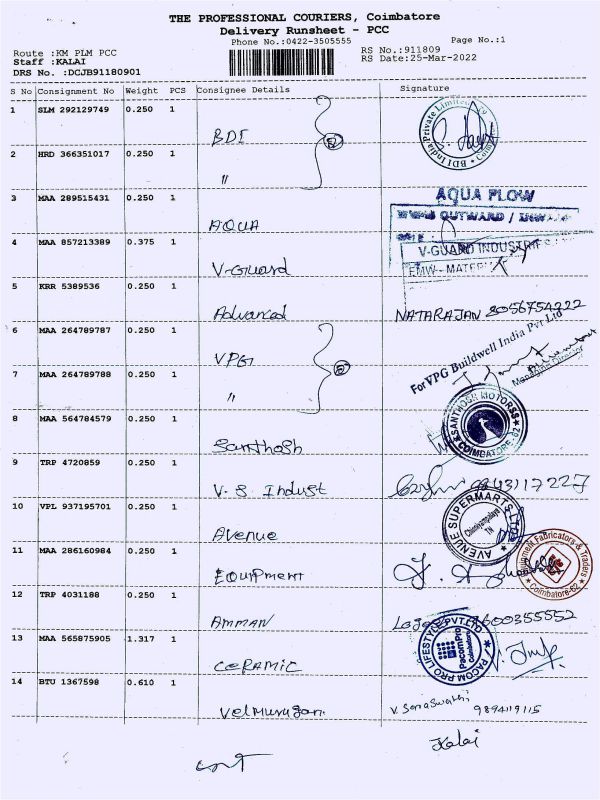 THE PROFESSIONAL COURIERS, Coimbatore
Delivery Runsheet - PCC
Phone No.:0422-3505555 Page No.:1
Route :KM PLM PCC RS No.:911809
Staff :KALAI RS Date:25-Mar-2022
DRS No. :DCJB91180901
S No Consignment No Weight PCS Consignee Details Signature
1 SLM 292129749 0.250 1
BDI
BDI India Private Limited
2 HRD 366351017 0.250 1
"
3 MAA 289515431 0.250 1
AQUA
AQUA FLOW
OUTWARD /
4 MAA 857213389 0.375 1
V-Guard
V-GUARD INDUSTRIES
EMW - MATERI
5 KRR 5389536 0.250 1
Advanced NATARAJAN 8056754222
6 MAA 264789787 0.250 1
VPG
For VPG Buildwell India Pvt Ltd
Managing Director
7 MAA 264789788 0.250 1
"
8 MAA 564784579 0.250 1
Santhosh
SANTHOSH MOTORSS
COIMBATORE-62
9 TRP 4720859 0.250 1
V. S. Indust
10 VPL 937195701 0.250 1
Avenue
AVENUE SUPERMARTS LTD
TN
11 MAA 286160984 0.250 1
Equipment
Equipment Fabricators & Traders
Coimbatore-62
12 TRP 4031188 0.250 1
AMMAN
13 MAA 565875905 1.317 1
Ceramic
PACOM PRO LIFESTYLE PVT LTD
PacomPro
Coimbatore
14 BTU 1367598 0.610 1
Velmurugan V. Saraswathi
9894119115
Kalai